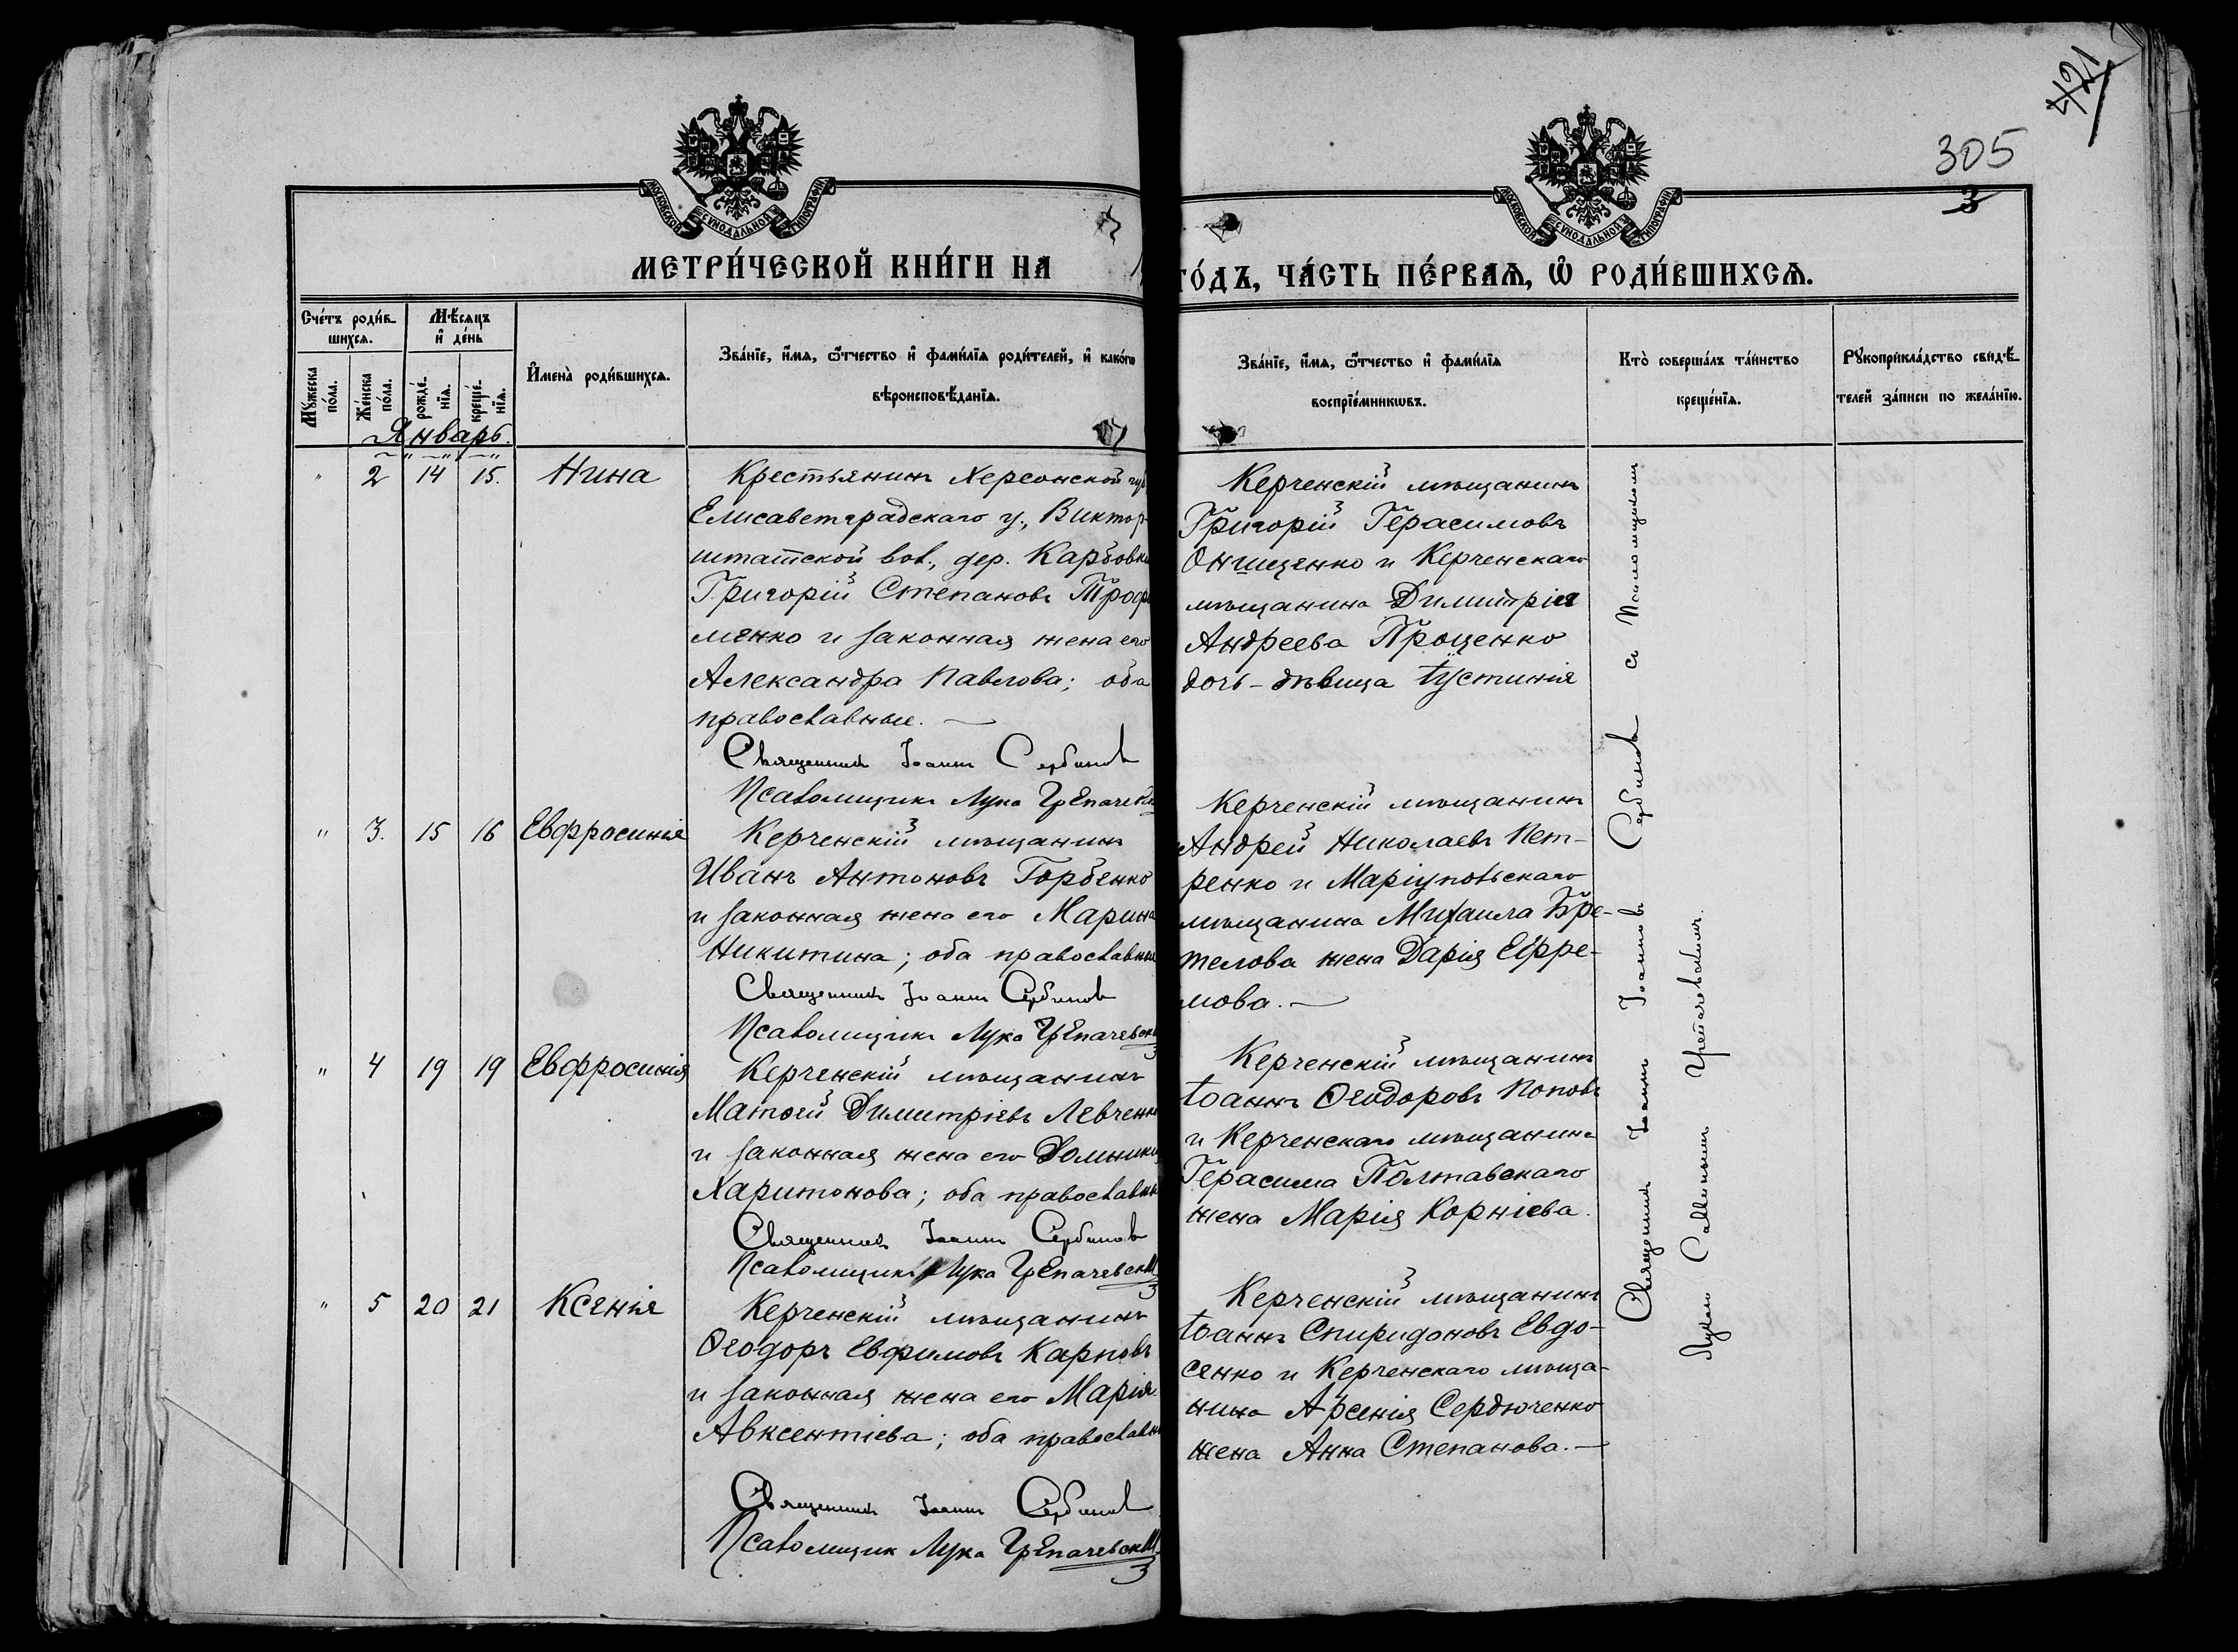 421
305
3
МОСКОВСКОЙ СѴНОДАЛЬНОЙ ТИПОГРАФІИ
МОСКОВСКОЙ СѴНОДАЛЬНОЙ ТИПОГРАФІИ
МЕТРИ́ЧЕСКОЙ КНИ́ГИ НА
ГО́ДЪ, ЧА́СТЬ ПЕ́РВАѦ, Ѡ҆ РОДИ́ВШИХСѦ.
Сче́тъ роди́в-
шихсѧ.
Мꙋ́жеска
по́ла.
Же́нска
по́ла.
Мѣ́сѧцъ
и҆ де́нь
рожде́-
нїѧ.
креще́-
нїѧ.
И҆мена̀ роди́вшихсѧ.
Зва́нїе, и҆́мѧ, ѻ҆́тчество и҆ фами́лїѧ роди́телей, и҆ како́гѡ
вѣроисповѣ́данїѧ.
Зва́нїе, и҆́мѧ, ѻ҆́тчество и҆ фами́лїѧ
воспрїе́мникѡвъ.
Кто̀ соверша́лъ та́инство
креще́нїѧ.
Рꙋкоприкла́дство свидѣ́-
телей за́писи по жела́нїю.
Январь.
" 2 14 15. Нина
Крестьянинъ Херсонской губ
Елисаветградскаго у., Виктор-
штатской вол., дер. Карловки
Григорій Степановъ Трофи
менко и законная жена его
Александра Павлова; оба
православные.
Священникъ Іоаннъ Сербиновъ
Псаломщикъ Лука
Керченскій мѣщанинъ
Григорій Герасимовъ
Онищенко и Керченскаго
мѣщанина Димитрія
Андреева Проценко
дочь-дѣвица Іустинія
" 3. 15 16 Евфросинія
Керченскій мѣщанинъ
Иванъ Антоновъ Горбенко
и законная жена его Марина
Никитина; оба православные
Священникъ Іоаннъ Сербиновъ
Псаломщикъ Лука
Керченскій мѣщанинъ
Андрей Николаевъ Пет-
ренко и Маріупольскаго
мѣщанина Михаила Бре-
телова жена Дарія Ефре-
мова.
" 4 19 19 Евфросинія
Керченскій мѣщанинъ
Матѳей Димитріевъ Левченко
и законная жена его Домникія
Харитонова; оба православные
Священникъ Іоаннъ Сербиновъ
Псаломщикъ Лука
Керченскій мѣщанинъ
Іоаннъ Ѳеодоровъ Поповъ
и Керченскаго мѣщанина
Герасима Полтавскаго
жена Марія Корніева.
" 5 20 21 Ксенія
Керченскій мѣщанинъ
Ѳеодоръ Евфимовъ Карповъ
и законная жена его Марія
Авксентіева; оба православн
Священникъ Іоаннъ Сербиновъ
Псаломщик Лука
Керченскій мѣщанинъ
Іоаннъ Спиридоновъ Евдо-
сенко и Керченскаго мѣща-
нина Арсенія Сердюченко
жена Анна Степанова.
Священникъ Іоаннъ Іоанновъ Сербиновъ съ Псаломщикомъ
Лукою